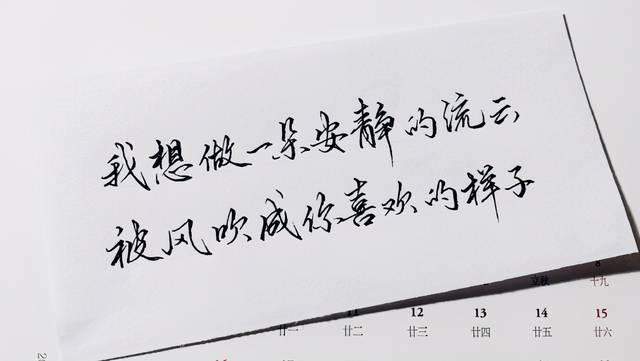 我想做一朵安静的流云
被风吹成你喜欢的样子
8
立秋 十九
11 12 13 14 15
廿一 廿二 廿三 廿四 廿五 廿六